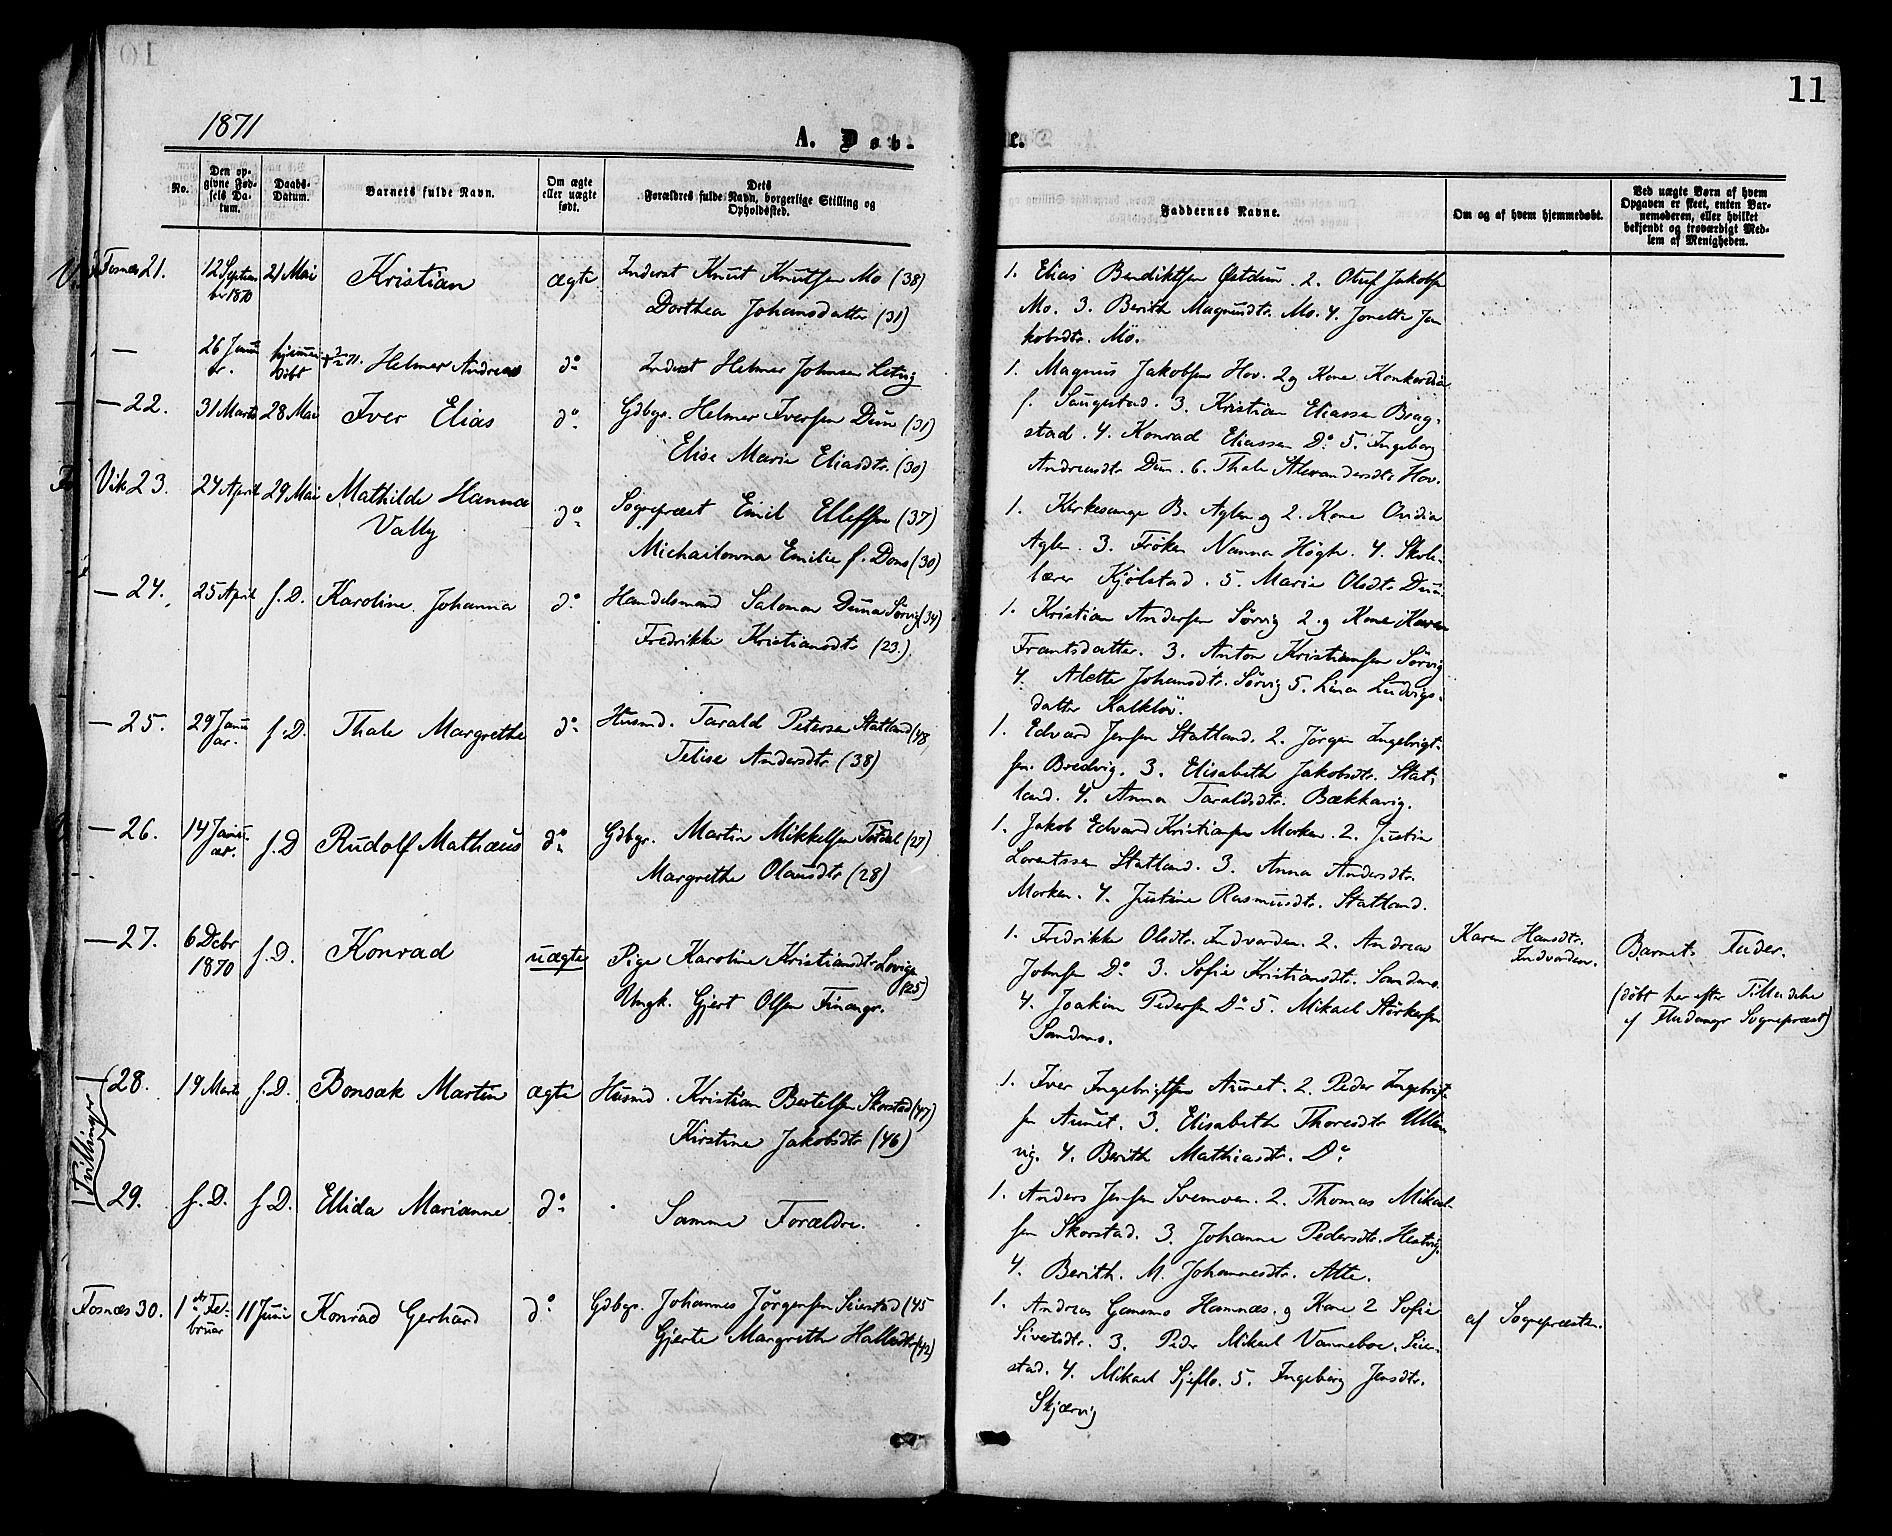 11
1871
A. Døbte.
No.
Den opgivne Fødsels Datum.
Daabs-Datum.
Barnets fulde Navn.
Om ægte eller uægte født.
Dets Forældres fulde Navn, borgerlige Stilling og Opholdssted.
Faddernes Navne.
Om og af hvem hjemmedøbt.
Ved uægte Børn af hvem Opgaven er skeet, enten Barnemoderen, eller hvilket bekjendt og troværdigt Medlem af Menigheden.
Fosnæs 21. 12 Septem ber 1870 21 Mai Kristian ægte Inderst Knut Knutsen Mo (38)
Dorthea Johansdatter (31)
1. Elias Bendiktsen Østdun. 2. Oluf Jakobsen
Mo. 3. Berith Magnusdtr. Mo. 4. Jonette Ja
kobsdtr. Mo.
— 26 Janu ar. hjemme døbt Helmer Andreas do Inderst Helmer Johnsen
— 22. 31 Marts 28 Mai Iver Elias do Gdbgr. Helmer Iversen Dun (31)
Elise Marie Eliasdtr. (30)
1. Magnus Jakobsen Hov. 2 og Kone Konkordia
f. Saugestad. 3. Kristian Eliassen Brag-
stad. 4. Konrad Eliassen Do 5. Ingeborg
Andreasdtr. Dun. 6. Thale Alexandersdtr. Hov.
Vik 23. 24 April 29 Mai Mathilde Hanna Vally do Sognepræst Emil Ellefsen (37)
Michailowna Emilie f. Dons (30)
1. Kirkesanger B. Aglen og 2. Kone Ovidia
Aglen. 3. Frøken Nanna Høgh. 4. Skole-
lærer Kjølstad. 5. Maria Olsdtr. Dun.
— 24. 25 April s. D. Karoline Johanna do Handelsmand Salomon Duna Sørvig (34)
Fredrikke Kristiansdtr (23.)
1. Kristian Andersen Sørvig 2. og Kone Karen
Frantsdatter. 3. Anton Kristiansen Sørvig
4. Alette Johansdtr. Sørvig 5. Lina Ludvigs-
datter Kalkløv.
— 25. 29 Janu ar. s. D. Thale Margrethe do Husmd. Tarald Petersen Statland (48)
Telise Andersdtr. (38)
1. Edvard Jensen Statland. 2. Jørgen Ingebrigt-
sen Bredvig. 3. Elisabeth Jakobsdtr. Stat-
land. 4. Anna Taraldsdtr. Bækkavig.
— 26. 14 Janu ar. s. D Rudolf Mathæus do Gdbgr. Martin Mikkelsen Totdal (27)
Margrethe Olausdtr (28)
1. Jakob Edvard Kristiansen Morken. 2. Justin
Lorentssen Statland. 3. Anna Andersdtr.
Morken. 4. Justine Rasmusdtr. Statland.
— 27. 6 Debr 1870 s. D. Konrad uægte Pige Karoline Kristiansdtr Lovige (25)
Ungk. Gjert Olsen Finangr.
1. Fredrikke Olsdtr. Indvorden. 2. Andreas
Johnsen Do 3. Sofie Kristiansdtr. Sandmo.
4. Joakim Pedersen Do 5. Mikael Størkersen
Sandmo.
Karen Hansdtr. Indvorden.
Barnets Fader.
(døbt her efter Tilladelse
af Fladangr Sognepræst)
Tvillinger
— 28. 19 Marts s. D. Bonsak Martin ægte Husmd. Kristian Bertelsen Skorstad (47)
Kirstine Jakobsdtr (46)
1. Iver Ingebrigtsen Aunet. 2. Peder Ingebrigt-
sen Aunet. 3. Elisabeth Thoresdtr Ullen-
vig. 4. Berith Mathiasdtr. Do
29. s. D. s. D. Ellida Marianne do Samme Forældre.
1. Anders Jensen Svemoen. 2. Thomas Mikael-
sen Skorstad. 3. Johanne Pedersdtr. Hestvig
4. Berith. M. Johannesdtr. Atte.
Fosnæs 30. 1ste Fe- bruar 11 Juni Konrad Gerhard do Gdbgr. Johannes Jørgensen Seierstad (45
Gjerte Margrethe Hallesdtr (42)
1. Andreas Ganesmo Hamnæs. og Kone 2 Sofie
Sivertsdtr. 3. Peder Mikael Vannebo. Seier-
stad. 4. Mikael Sjeflo. 5. Ingeborg Jensdtr.
Skjærvig
af Sognepræsten.